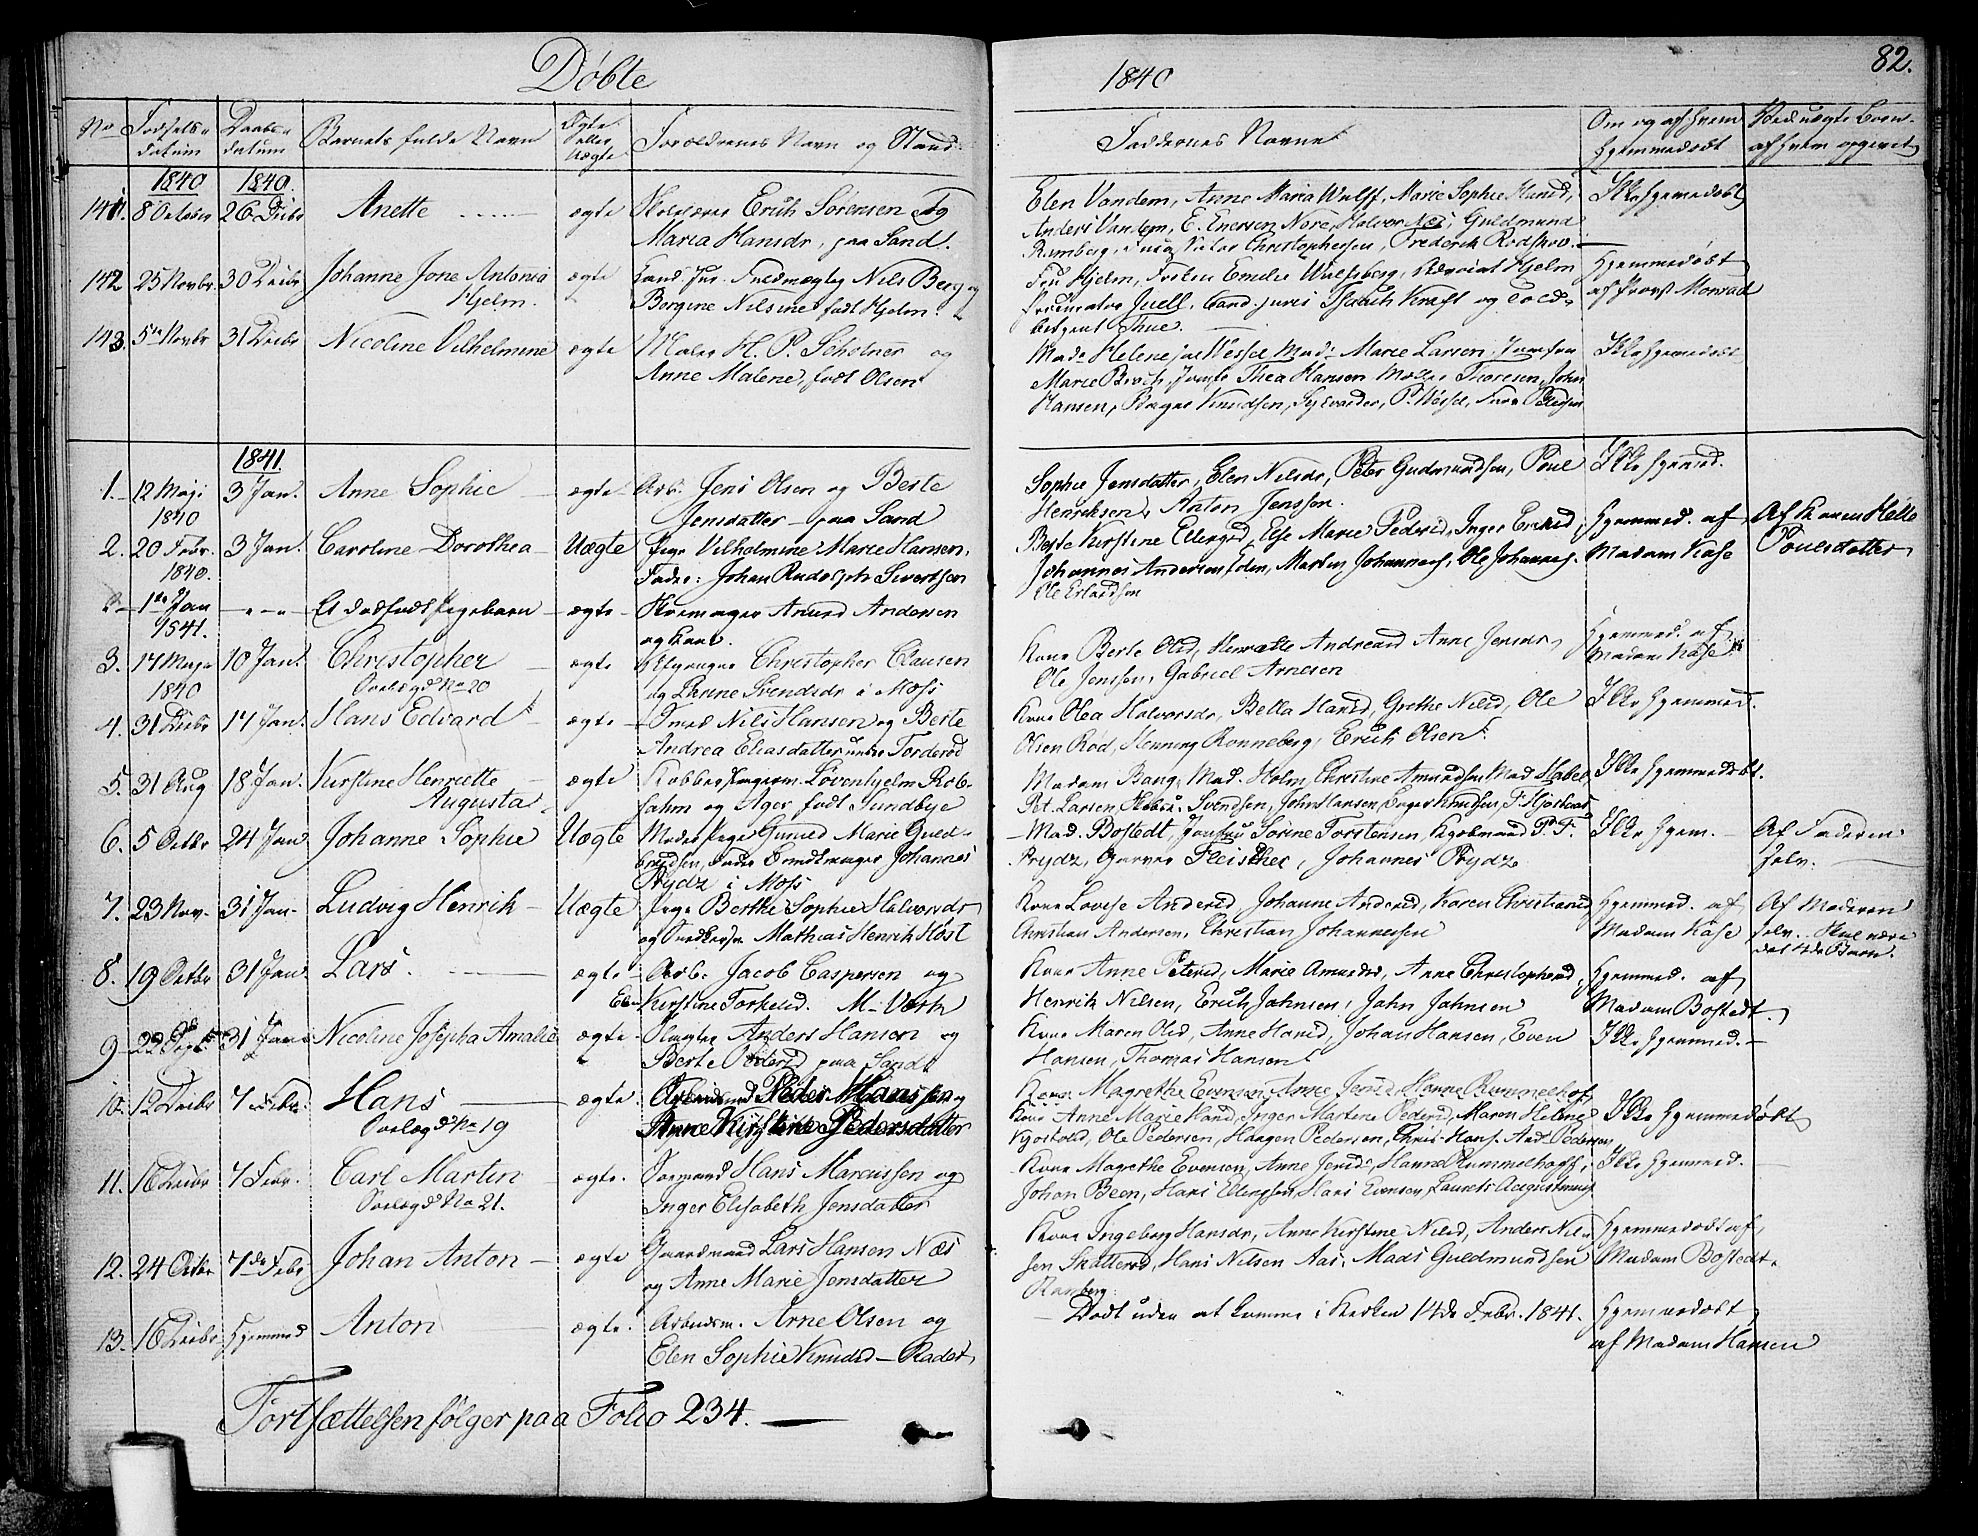 Døbte
1840
82.
No Fødsels- datum Daabs- datum Barnets fulde Navn Ægte eller Uægte Forældrenes Navn og Stand.
Faddernes Navne Om og af hvem hjemmedøbt Ved uægte Børn af hvem opgivet
1840 1840.
141. 8 October 26 Decbr Anette ægte Erich Sørensen og
Maria Hansdr, paa Sand.
Elen Vandem, Anne Maria Wulff, Marie Sophie
Anders Vandem, E. Enersen Nore, Halvor Næs, Guldmund
Ramberg, Christophersen, Frederik Rodskov.
Ikke hjemmedøbt
142 25 Novbr 30 Decbr Johanne Jone Antonia ægte Cand. Jur. Fuldmægtig Nils Berg og
Hjelm. Bergine Nilsine født Hjelm.
Fru Hjelm, Frøken Emilie Wulfsberg, Hjelm
Procurator Juell, Cand. juris Kraft og
betjent Thue.
Hjemmedøbt
af Provst Monrad
143. 5te Novbr 31 Decbr Nicoline Vilhelmine ægte Maler H. P. Scholner og
Anne Malene, født Olsen
Mad. Helene Wessel Mad. Marie Larsen, Jomfru
Marie Jomfr Thea Hansen Møller Thoresen, John
Hansen, Knudsen, P. Wessel, Pedersen
Ikke hjemmedøbt
1841.
1. 12 Maji 3 Jan. Anne Sophie ægte Arb. Jens Olsen og Berte
1840 Jensdatter paa Sand
Sophie Jensdatter, Elen Nilsdr, Peter Gudmundsen, Poul
Henriksen, Anton Jenssen.
Ikke hjemmed.
2. 20 Febr. 3 Jan. Caroline Dorothea Uægte Pige Vilhelmine Marie Hansen,
1840. Fader: Johan Rudolph Sivertsen
Berte Kirstine Ellingsd, Else Marie Pedersd, Inger Ericksd,
Johannes Andersen Eden, Martin Johannes., Ole Johannes.
Ole Erlandsen
Hjemmed. af
Madam Kase
Af Karen Helle
Poulsdatter
1te Jan Et dødfødt Pigebarn ægte Andersen
1841. og Kone.
3. 17 Maji 10 Jan. Christopher ægte Christopher Clausen
1840 Ovelægd No 20 og Svendsdr i Moss
Kone Berte Olsd, Henriette Andreasd Anne Jensdr,
Ole Jenssen, Gabriel Arnesen
Hjemmed. af
Madam Kase
4. 31 Decbr 17 Jan. Hans Edvard ægte Smed Nils Hansen og Berte
Andrea Eliasdatter under Torderød
Kone Olea Halvorsdr, Bella Hansd, Grethe Nilsd, Ole
Olsen Rød, Henning Ronneberg, Erich Olsen
Ikke hjemmed.
5. 31 Aug 18 Jan. Kirstine Henriette ægte Løvenhjelm Rob-
Augusta sahm og Ager født Sundbye
Madam Bang, Mad. Holm, Christine Amundsen Mad Habel,
Pet. Larsen, Svendsen, John Hansen, Knudsen,
Ikke hjemmedøbt.
6. 5 Octbr 24 Jan Johanne Sophie Uægte Moder Pige Gunild Marie Guld-
brandsen, Fader Johannes
Prydz i Moss
Mad. Bostedt, Jomfru Sørine Torstensen, P. F.
Prydz, Garver Fleischer, Johannes Prydz
Ikke hjem.
Af Faderen
selv.
7. 23 Nov. 31 Jan. Ludvig Henrik Uægte Pige Berthe Sophie Halvorsdr
og Mathias Henrik Høst
Kone Lovise Andersd, Johanne Andersd, Karen Christiansd,
Christian Andersen, Christian Johannessen
Hjemmed. af
Madam Kase
Af Moderen
selv. Skal være
det 4de Barn.
8. 19 Octbr 31 Jan Lars. ægte Arb. Jacob Caspersen og
Elen Kirstine Torkelsd. M-Værk
Kone Anne Petersd, Marie Amundsd, Anne Christophersd,
Henrik Nilsen, Erich Jahnsen, Jahn Jahnsen
Hjemmed. af
Madam Bostedt.
9 22 Sept. 31 Jan Nicoline Josepha Amalie ægte Anders Hansen og
Berte paa Sand
Kone Maren Olsd, Anne Hansd, Johan Hansen, Even
Hansen, Thomas Hansen
Ikke hjemmed.
10. 12 Decbr 7 Febr. Hans ægte Arbeidsmand Peder Hanssen og
Ovelægd No 19 Anne Kirstine Pedersdatter
Kone Magrethe Evensen, Anne Jensd, Hanne Rummelhoff,
Kone Anne Marie Hansd, Inger Martene Pedersd, Maren Helene
Ole Pedersen, Haagen Pedersen, Chris. Hans. And. Pedersen
Ikke hjemmedøbt
11. 16 Decbr 7 Febr. Carl Martin ægte. Hans Marcussen og
Ovelægd No 21. Inger Elisabeth Jensdatter
Kone Magrethe Evensen, Anne Jensd, Hanne Rummelhoff,
Johan Been, Hans Ellingsen, Hans Evensen, Laurets Augustinus
Ikke hjemmed.
12. 24 Octbr 7de Febr Johan Anton ægte Gaardmand Lars Hansen Næs
og Anne Marie Jensdatter
Kone Ingeborg Hansdr, Anne Kirstine Nilsd, Anders Nil-
sen Skatterød, Hans Nilsen Aas, Mads Guldmundsen
Ramberg.
Hjemmedøbt af
Madam Bostedt.
13. 16 Decbr Hjemmed Anton ægte. Arbeidsm. Arne Olsen og
Elen Sophie Knudsd Rødet
Dødt uden at komme i Kirken 14de Febr. 1841.
Hjemmedøbt
af Madam Hansen
Fortsættelsen følger paa Folio 234.